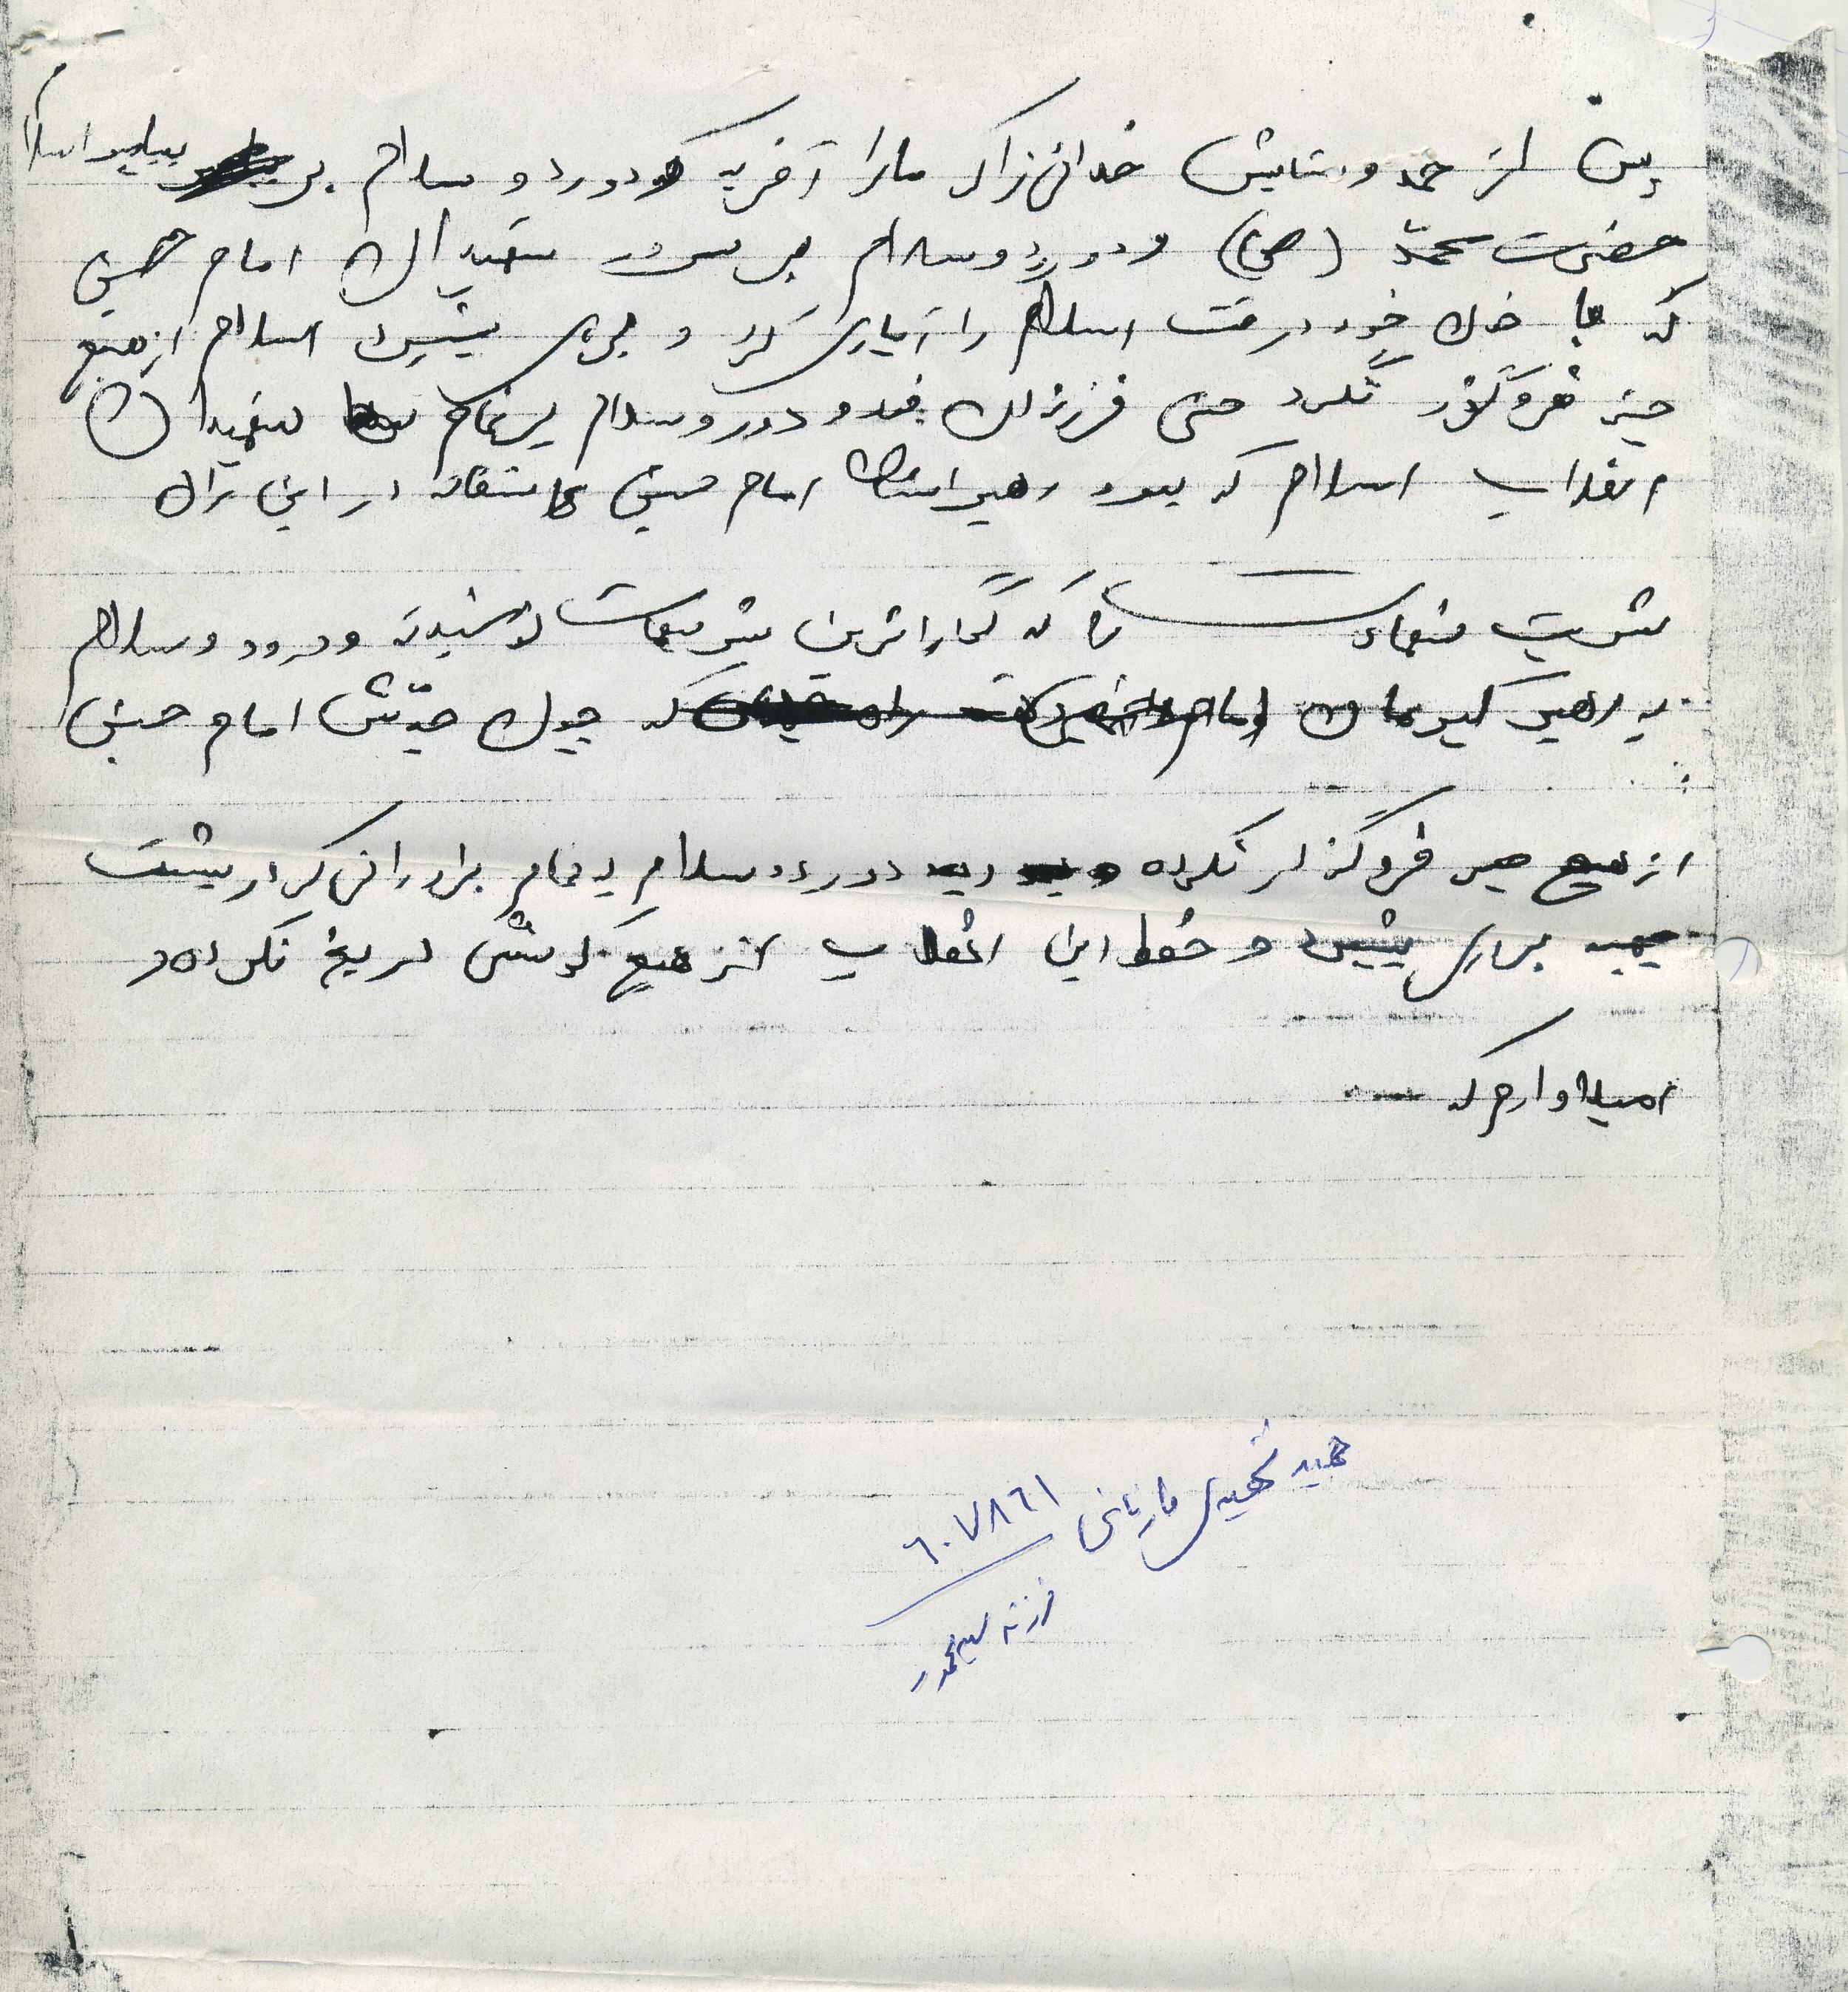 پس از حمد و ستایش خدائی را که ما را آفریه و دورد و سلام بر پیامبر اسلام
حضرت محمد (ص) و دورد و سلام بر سرور شهیدان امام حسین
که با خون خود درخت اسلام را آبیاری کرد و برای پیشبرد اسلام از هیچ
چیز فروگذر نکرد حتی فرزندان خود و درود و سلام بر تمام شهیدان
انقلاب اسلام که رهبر امام حسین عاشقانه در این
شربت شهادت را که گواراترین شربتهاست نوشیدند و درود و سلام
به رهبر کبیرمان امام که چون جدش امام حسین
از هیچ چیز فروگذار نکرده و به دورد و سلام به تمام برادرانی که در پشت
جبهه برای پیشبرد و حفظ این انقلاب از هیچ کوشش دریغ نکرده‌اند
امیدوارم که
شهید مارنانی ۶۰۷۸۶۱
فرزند